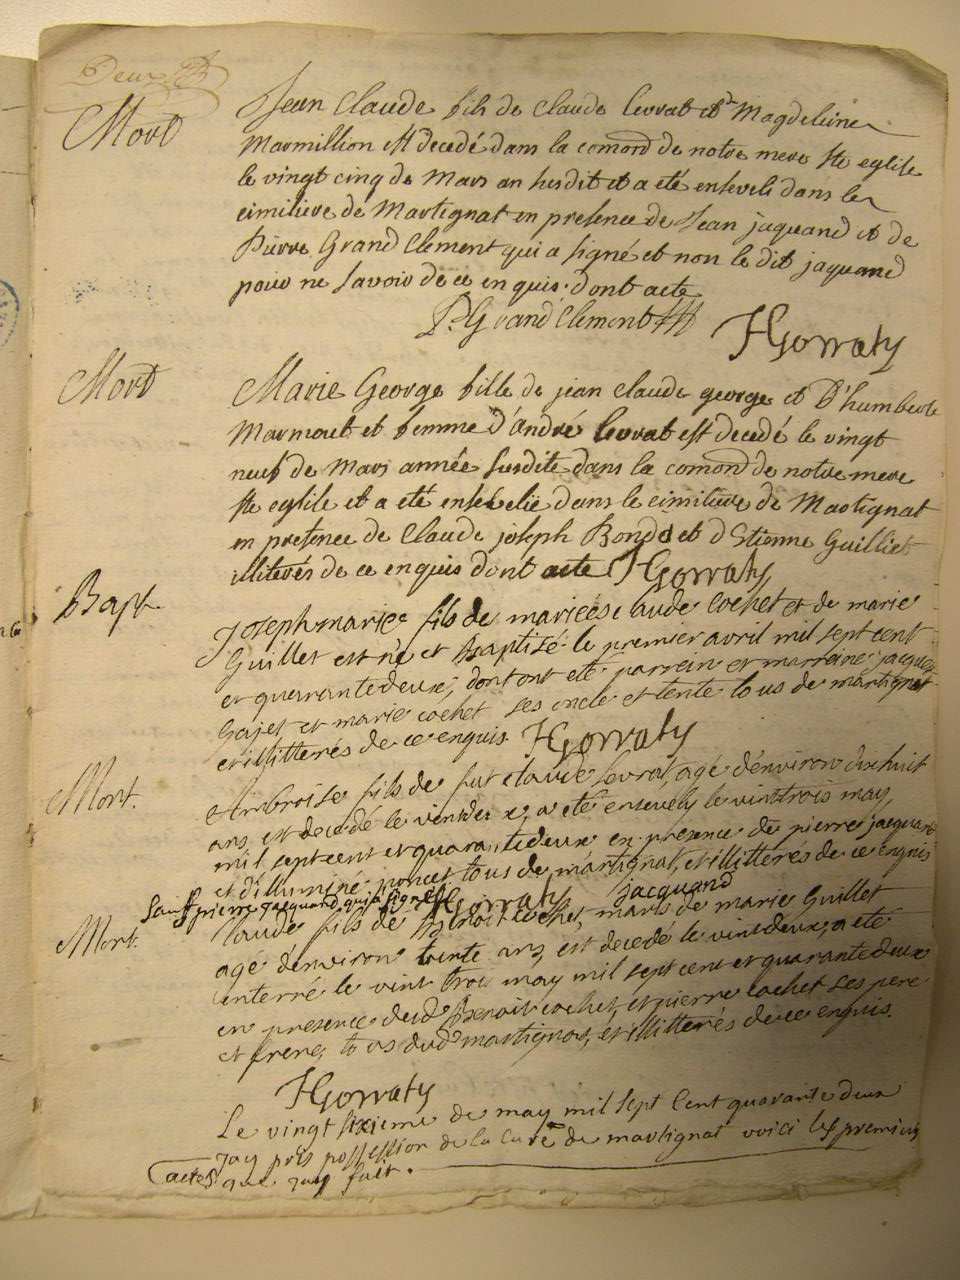 Deux
Mort
Jean Claude fils de Claude Levrat et d Magdeleine
Marmillion est decedé dans la comond de notre mere ste eglise
le vingt cinq de Mars an susdit et a eté enseveli dans le
cimitiere de Martignat en presence de Jean jaquand et de
Pierre Grand Clement qui a signé et non le dit jaquand
pour ne savoir de ce enquis. dont acte
P. Grand Clement
JGorraty
Mort
Marie George fille de jean claude george et d'humberte
Marmout et femme d'André Levrat est decedé le vingt
neuf de Mars année susdite dans la comond de notre mere
ste eglise et a eté ensevelie dans le cimitiere de Martignat
en presence de Claude joseph Bondet et d Etienne Guilliet
illiterés de ce enquis dont acte JGorraty
Bapt.
Joseph marie fils de marie claude Cochet et de marie
Guillet est né et baptisé le premier avril mil sept cent
et quarante deux, dont ont eté parrein et marreine jacques
Gajet et marie cochet ses oncle et tente tous de martignat
et illitterés de ce enquis JGorraty
Mort.
Ambroise fils de fut claude Levrat, agé d'environ dixhuit
ans, est decedé le vint deux, a eté ensevely le vint trois may
mil sept cent et quarante deux en presence de pierre jacquand
et d'illuminé poncet tous de martignat, et illitterés de ce enquis
sauf pierre jacquand qui a signé JGorraty jacquand
Mort.
Claude fils de Benoit Cochet, maris de marie Guillet
agé d'environ trente ans, est decedé le vint deux, a eté
enterré le vint trois may mil sept cent et quarante deux
en presence dud Benoit cochet, et pierre cochet ses pere
et frere, tous dud martignat, et illitterés de ce enquis.
JGorraty
Le vingt sixieme de may mil sept Cent quarante deux
jay pris possession de la Cure de martignat voici les premiers
actes que jay fait.